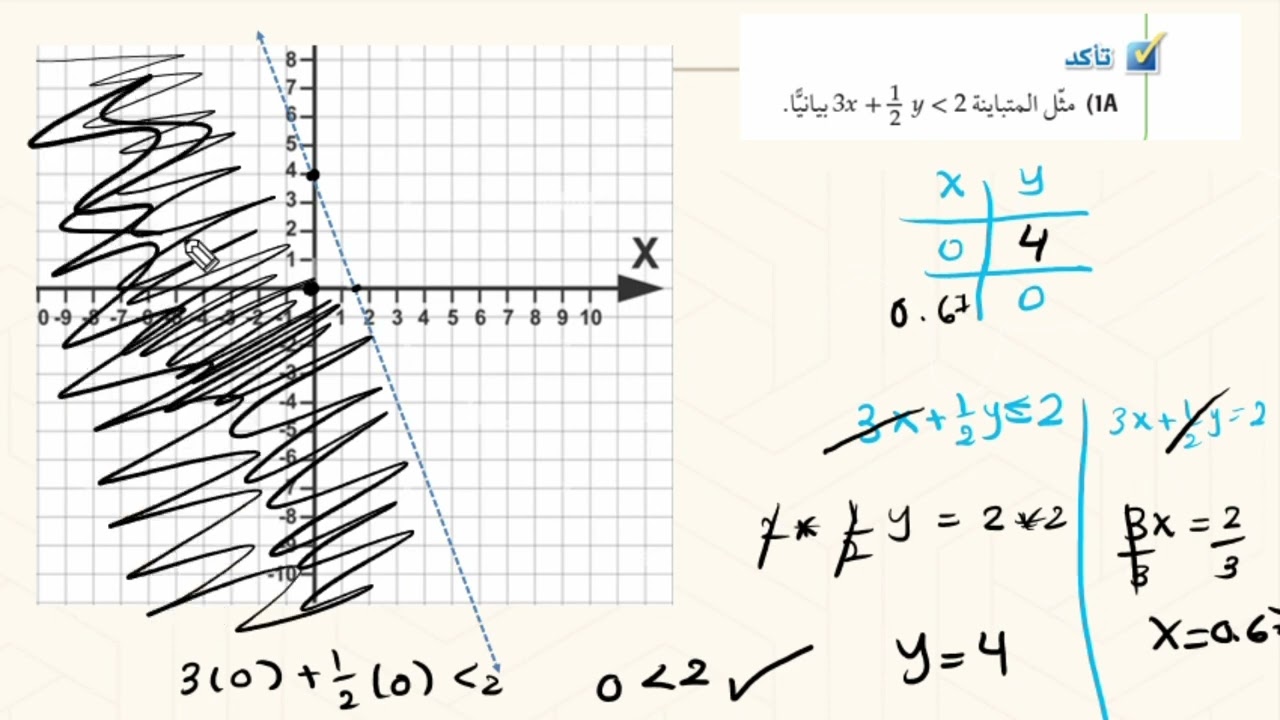 تأكد
1A) مثّل المتباينة 3x + 1/2 y < 2 بيانيًّا.
x y
0 4
0.67 0
3x + 1/2 y ≤ 2
2 * 1/2 y = 2 * 2
y = 4
3x + 1/2 y = 2
3x/3 = 2/3
x = 0.67
8
7
6
5
4
3
2
1
X
0 -9 -8 -7 -6 -5 -4 -3 -2 -1 1 2 3 4 5 6 7 8 9 10
-2
-3
-4
-5
-6
-7
-8
-10
3(0) + 1/2 (0) < 2
0 < 2 ✓